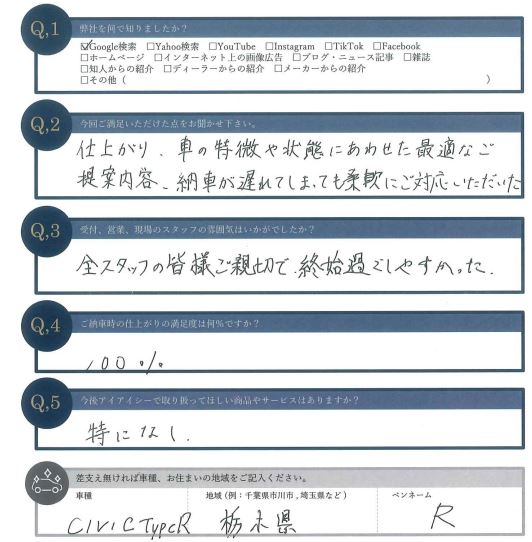 Q,1 弊社を何で知りましたか?
☑Google検索 □Yahoo検索 □YouTube □Instagram □TikTok □Facebook
□ホームページ □インターネット上の画像広告 □ブログ・ニュース記事 □雑誌
□知人からの紹介 □ディーラーからの紹介 □メーカーからの紹介
□その他( )
Q,2 今回ご満足いただけた点をお聞かせ下さい。
仕上がり、車の特徴や状態にあわせた最適なご
提案内容、納車が遅れてしまっても柔軟にご対応いただいた
Q,3 受付、営業、現場のスタッフの雰囲気はいかがでしたか?
全スタッフの皆様ご親切で、終始過ごしやすかった.
Q,4 ご納車時の仕上がりの満足度は何%ですか?
100%
Q,5 今後アイアイシーで取り扱ってほしい商品やサービスはありますか?
特になし.
差支え無ければ車種、お住まいの地域をご記入ください。
車種 地域(例:千葉県市川市,埼玉県など) ペンネーム
CIVIC TypeR 栃木県 R